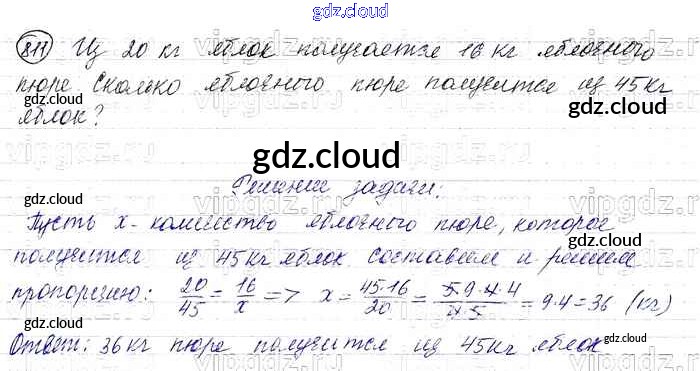 gdz.cloud
811 Из 20 кг яблок получается 16 кг яблочного
пюре. Сколько яблочного пюре получится из 45 кг
gdz.cloud
gdz.cloud
яблок?
gdz.cloud
gdz.cloud
Решение задачи:
Пусть x - количество яблочного пюре, которое
gdz.cloud
gdz.cloud
получится из 45 кг яблок составим и решим
пропорцию: 20/45 = 16/x => x = 45·16/20 = 5·9·4·4/4·5 = 9·4 = 36 (кг)
Ответ: 36 кг пюре получится из 45 кг яблок
gdz.cloud
gdz.cloud
vipgdz.ru